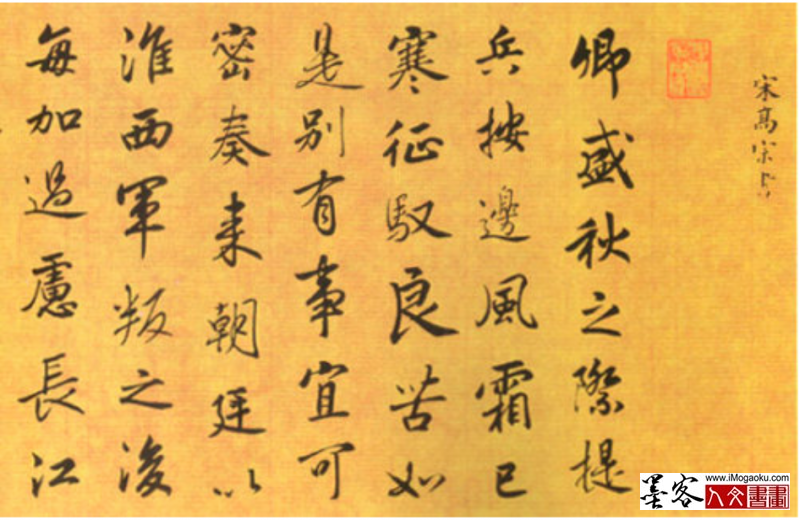 宋高宗書
卿盛秋之際提
兵按邊風霜已
寒征馭良苦如
是別有事宜可
密奏来朝廷以
淮西軍叛之後
每加過慮長江
墨客
www.iMogaoku.com
人文書畫